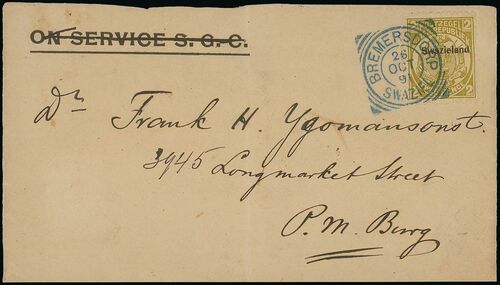 ON SERVICE S. G. C.
BREMERSDORP
26
OCT
9
SWAZI
2
ZEGEL
REPUBL
2
Swazieland
2
2
Dr
Frank H. Ygomansonst.
3945 Longmarket Street
P. M. Burg